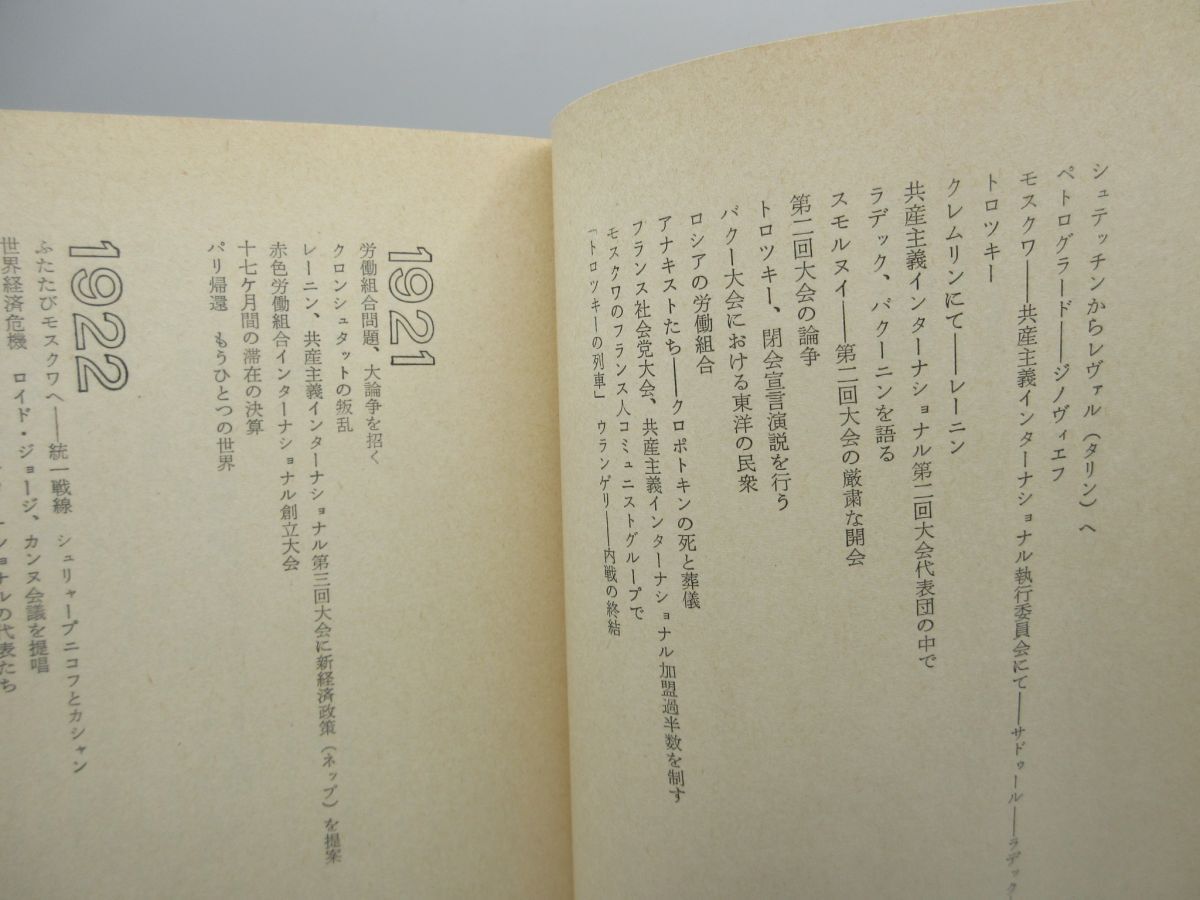 シュテッチンからレヴァル（タリン）へ
ペトログラード――ジノヴィエフ
モスクワ――共産主義インターナショナル執行委員会にて――サドゥール――ラデック
トロツキー
クレムリンにて――レーニン
共産主義インターナショナル第二回大会代表団の中で
ラデック、バクーニンを語る
スモルヌイ――第二回大会の厳粛な開会
第二回大会の論争
トロツキー、閉会宣言演説を行う
バクー大会における東洋の民衆
ロシアの労働組合
アナキストたち――クロポトキンの死と葬儀
フランス社会党大会、共産主義インターナショナル加盟過半数を制す
モスクワのフランス人コミュニストグループで
「トロツキーの列車」 ウランゲリ――内戦の終結
1921
労働組合問題、大論争を招く
クロンシュタットの叛乱
レーニン、共産主義インターナショナル第三回大会に新経済政策（ネップ）を提案
赤色労働組合インターナショナル創立大会
十七ケ月間の滞在の決算
パリ帰還 もうひとつの世界
1922
ふたたびモスクワへ――統一戦線 シュリャープニコフとカシャン
世界経済危機 ロイド・ジョージ、カンヌ会議を提唱
ショナルの代表たち